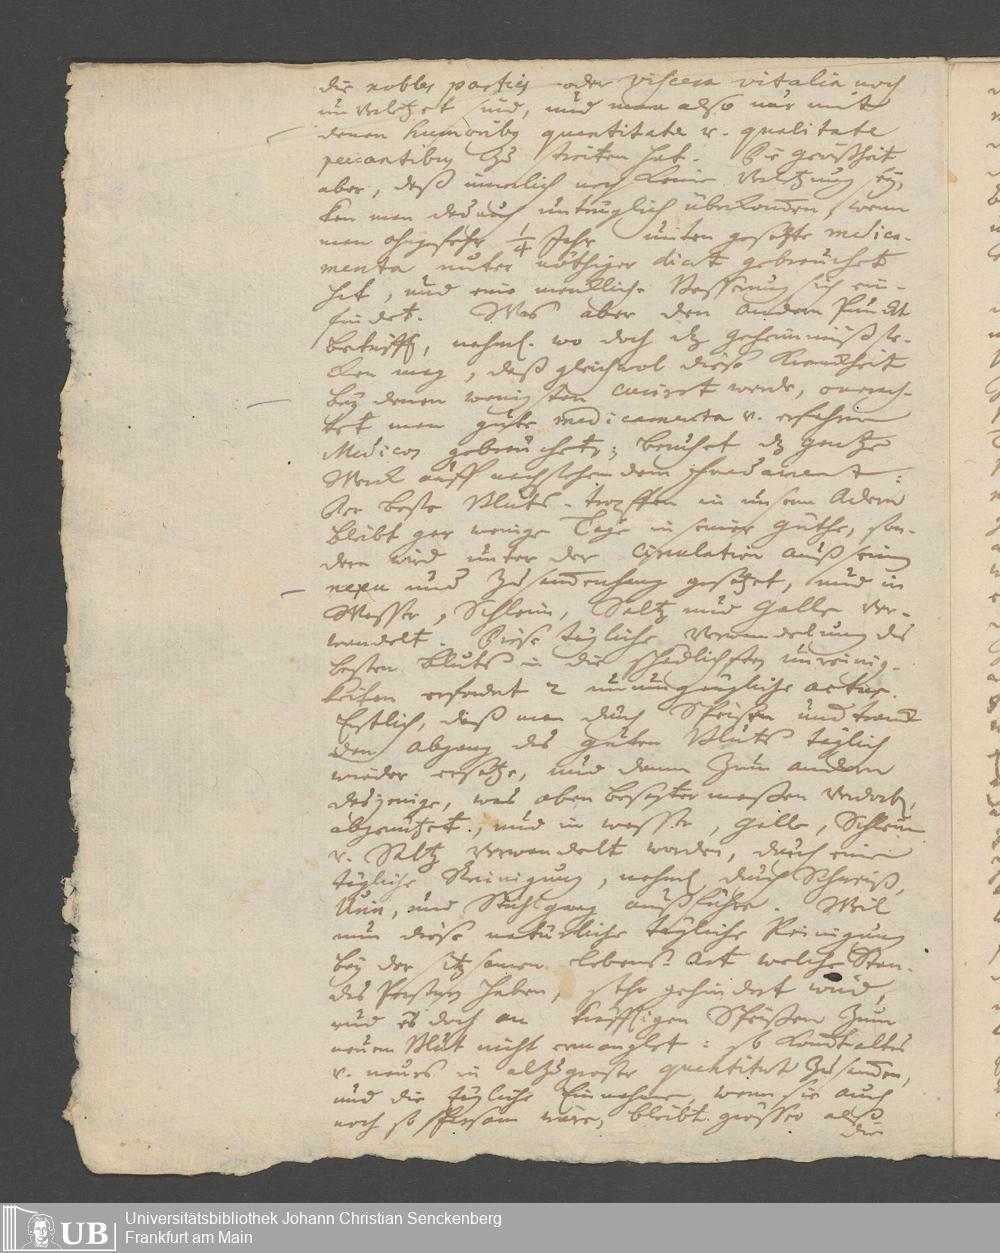 die nobles parties oder viscera vitalia noch
unverletzet sind, und man also nur mit
denen humoribus quantitate v. qualitate
peccantibus zu streiten hat. Die Gewißheit
aber, daß innerlich noch keine Verletzung sey,
kan man dadurch untrüglich überkommen, wenn
man ohngefehr 1/4 Jahr unten gesetzte medica-
menta unter nöthiger diaet gebrauchet
hat, und eine merkliche Besserung sich ein-
findet. Was aber den andern Punckt
betrifft, nehml. wo doch dz geheimnüß ste-
cken mag, daß gleichwol diese Kranckheit
bey denen wenigsten curirt werde, ohnerach-
tet man gute medicamenta v. erfahrne
Medicos gebrauchet; beruhet dz gantze
Werck auff nachstehendem fundament:
Der beste Bluts-tropffen in unsern Adern
bleibt gar wenige Tage in seiner Güthe, son-
dern wird unter der Circulation auß seinem
nexu und Zusammenhang gesetzet, und in
Wasser, Schleim, Saltz und Galle ver-
wandelt. Diese tägliche Verwandelung des
besten Bluts in die schädlichsten unreinig-
keiten erfordert 2 unumgängliche actus.
Erstlich, daß man durch Speisen und tranck
den Abgang des guten Bluts täglich
wieder ersetze, und dann zum andern
dasjenige, was oben besagter maßen verdorben,
abgenutzet, und in wasser, Galle, Schleim
v. Saltz verwandelt worden, durch eine
tägliche Reinigung, nehml. durch Schweiß,
Urin, und Stuhlgang außführe. Weil
nun diese natürliche tägliche Reinigung
bey der sitzsamen lebens-Art welche Stan-
des Persohnen haben, sehr gehindert wird,
und es doch an kräfftigen Speißen zum
neuem Blut nicht ermanglet: so komt altes
v. neues in allzugroßer quantitaet zusammen,
und die tägliche Einnahme, wenn sie auch
noch so sparsam wäre, bleibt größer alß
die
Universitätsbibliothek Johann Christian Senckenberg
Frankfurt am Main
UB